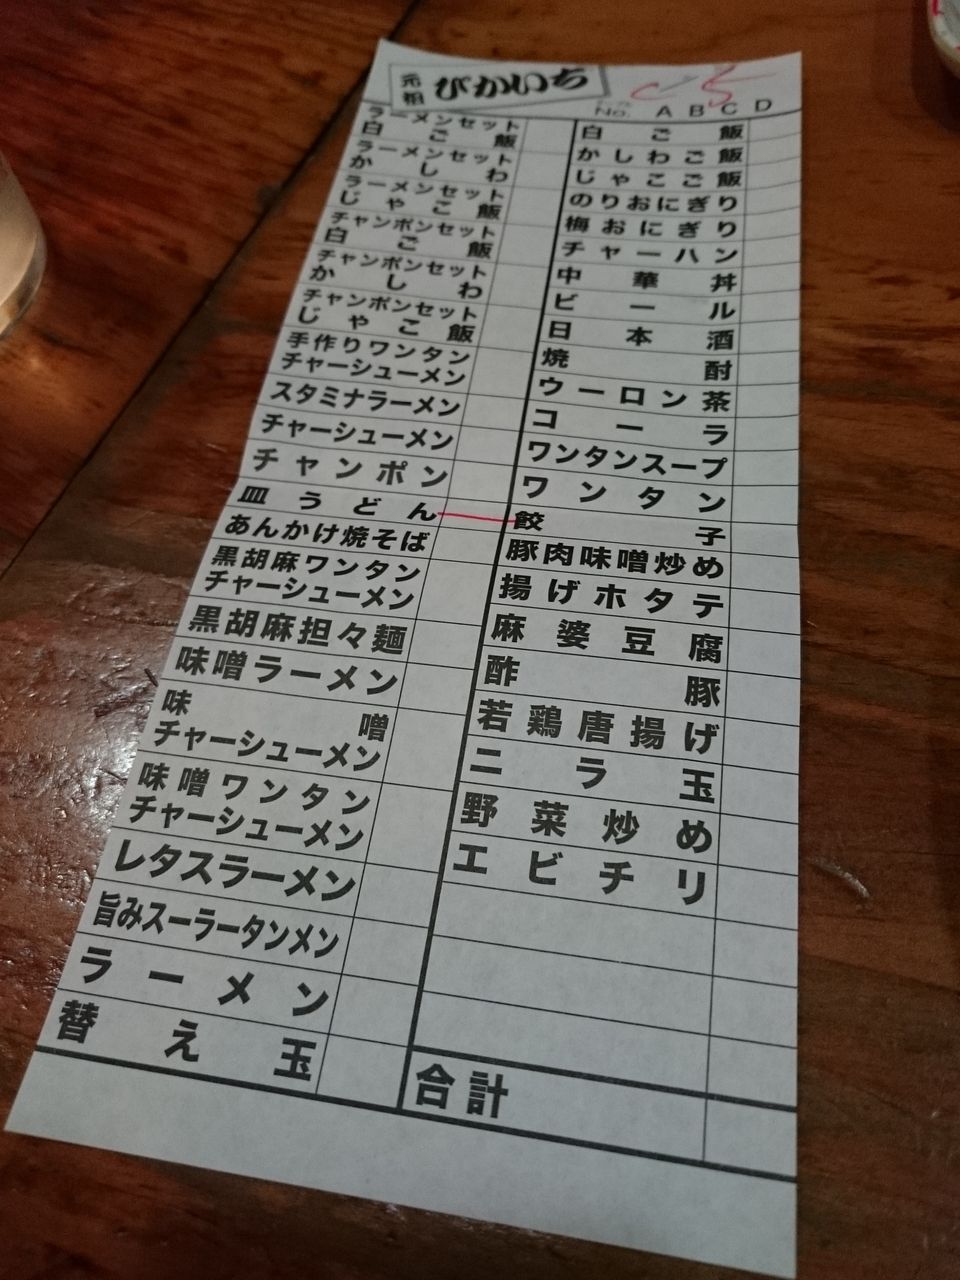 元祖 ぴかいち
C-5
No. A B C D
ラーメンセット
白ご飯
ラーメンセット
かしわ
ラーメンセット
じゃこ飯
チャンポンセット
白ご飯
チャンポンセット
かしわ
チャンポンセット
じゃこ飯
手作りワンタン
チャーシューメン
スタミナラーメン
チャーシューメン
チャンポン
皿うどん
あんかけ焼そば
黒胡麻ワンタン
チャーシューメン
黒胡麻担々麺
味噌ラーメン
味噌
チャーシューメン
味噌ワンタン
チャーシューメン
レタスラーメン
旨みスーラータンメン
ラーメン
替え玉
白ご飯
かしわご飯
じゃこご飯
のりおにぎり
梅おにぎり
チャーハン
中華丼
ビール
日本酒
焼酎
ウーロン茶
コーラ
ワンタンスープ
ワンタン
餃子
豚肉味噌炒め
揚げホタテ
麻婆豆腐
酢豚
若鶏唐揚げ
ニラ玉
野菜炒め
エビチリ
合計